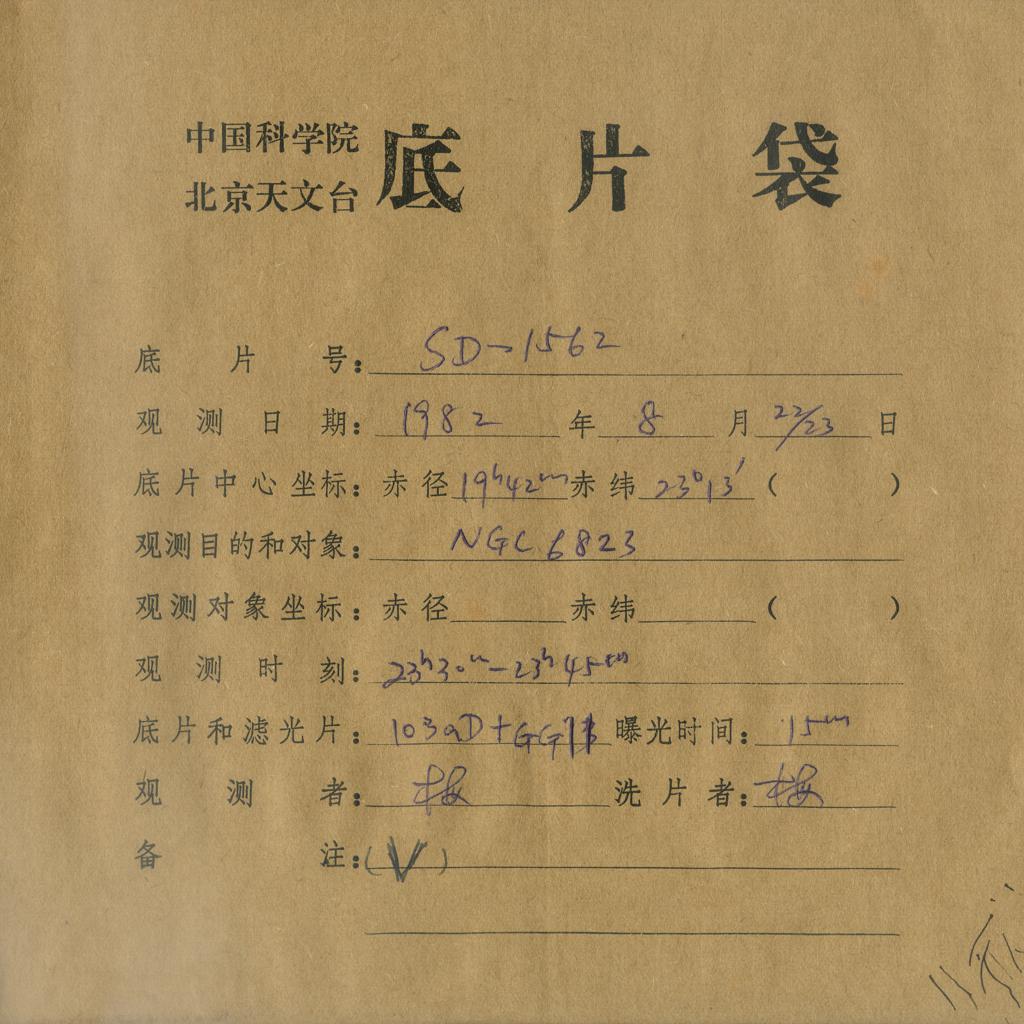 中国科学院
北京天文台 底片袋
底片号: SD-1562
观测日期: 1982 年 8 月 22/23 日
底片中心坐标: 赤径 19ʰ42ᵐ 赤纬 23°13′ ( )
观测目的和对象: NGC 6823
观测对象坐标: 赤径 赤纬 ( )
观测时刻: 23ʰ30ᵐ-23ʰ45ᵐ
底片和滤光片: 103aD+GG11 曝光时间: 15ᵐ
观测者: 梅 洗片者: 梅
备注: (V)